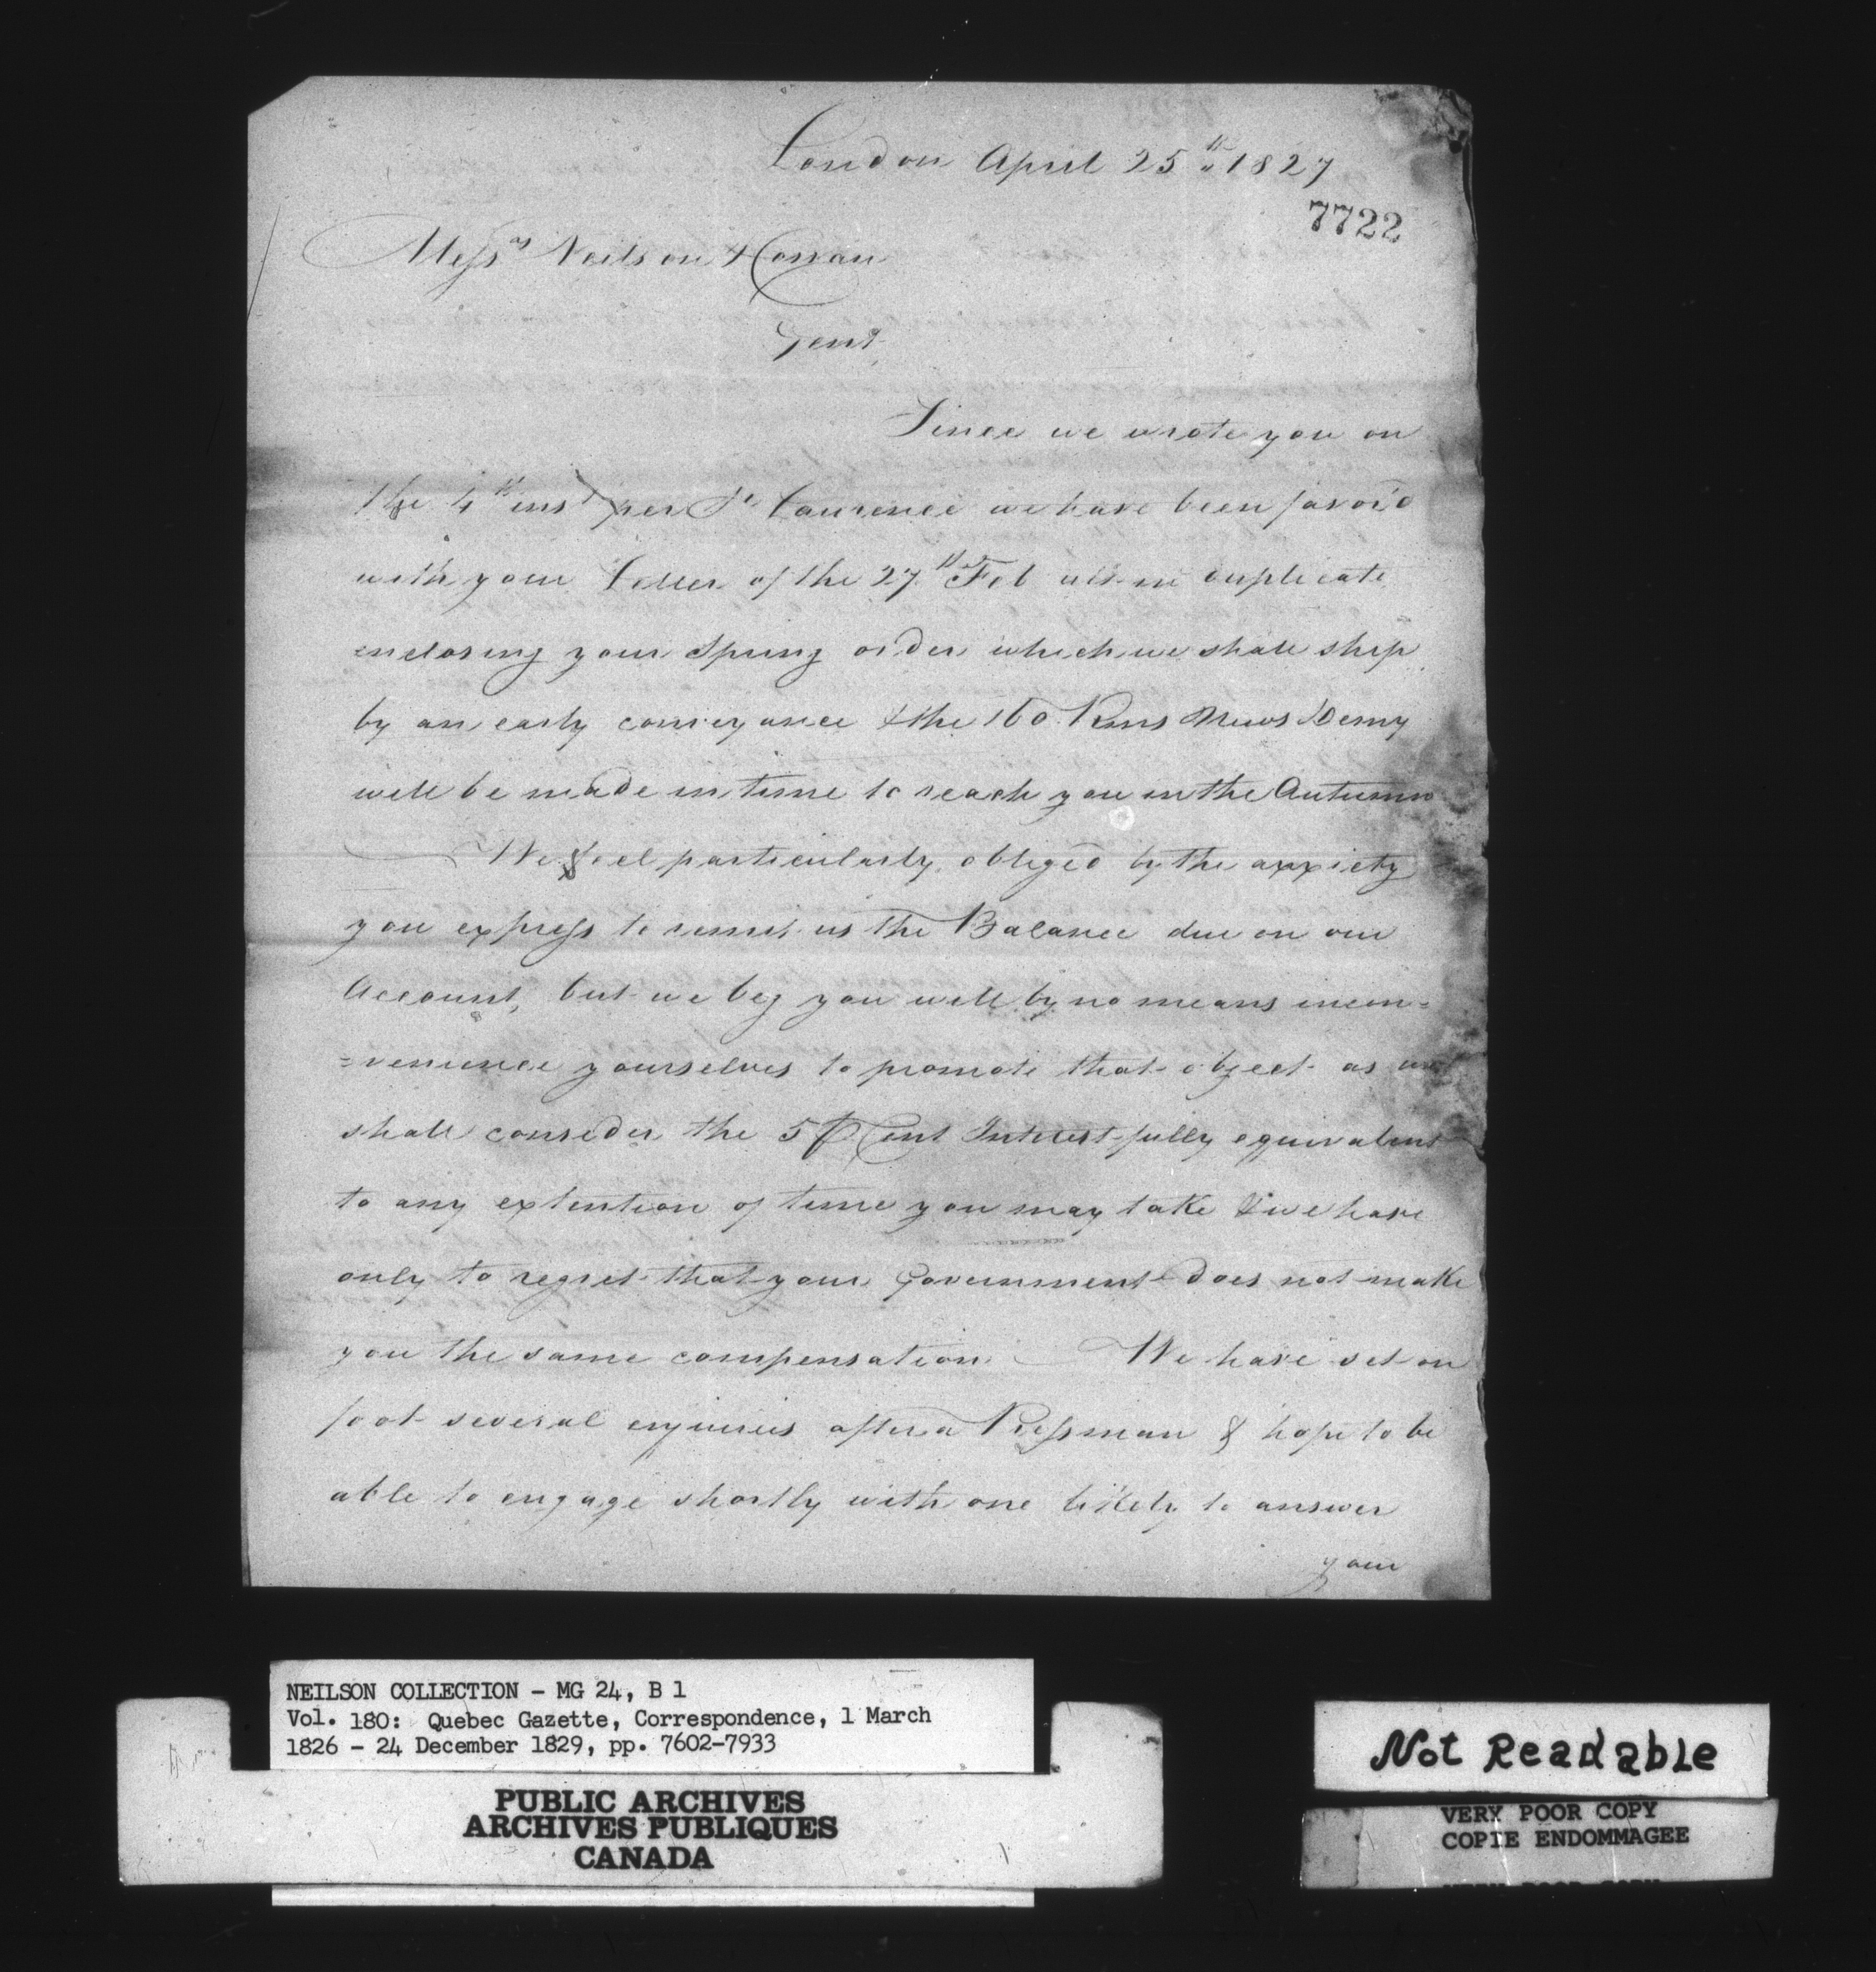 London April 25th 1827
7722
Messrs Neilson & Cowan
Gent
Since we wrote you on
the 4th inst per St Laurence we have been favor'd
with your Letter of the 27th Feb ult in duplicate
enclosing your Spring order which we shall ship
by an early conveyance & the 160 Rms News Demy
will be made in time to reach you in the Autumn
We feel particularly obliged by the anxiety
you express to remit us the Balance due on our
Account, but we beg you will by no means incon=
=venience yourselves to promote that object as we
shall consider the 5 P Cent Interest fully equivalent
to any extention of time you may take & we have
only to regret that your Government does not make
you the same compensation. We have set on
foot several enquiries after a Pressman & hope to be
able to engage shortly with one likely to answer
your
NEILSON COLLECTION - MG 24, B 1
Vol. 180: Quebec Gazette, Correspondence, 1 March
1826 - 24 December 1829, pp. 7602-7933
PUBLIC ARCHIVES
ARCHIVES PUBLIQUES
CANADA
Not Readable
VERY POOR COPY
COPIE ENDOMMAGEE